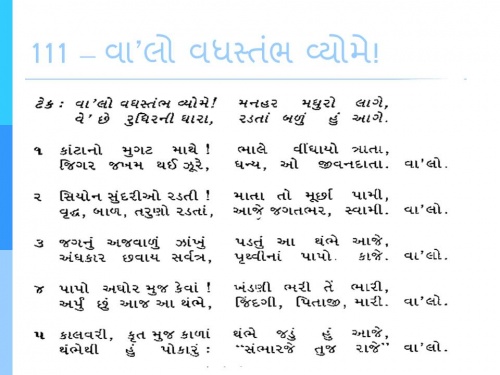 111 – વા'લો વધસ્તંભ વ્યોમે!
ટેક : વા'લો વધસ્તંભ વ્યોમે! મનહર મધુરો લાગે,
વે' છે રુધિરની ધારા, રડતાં બળું હું આગે.
૧ કાંટાનો મુગટ માથે ! ભાલે વીંધાયો ત્રાતા,
જિગર જખમ થઈ ઝૂરે, ધન્ય, ઓ જીવનદાતા. વા'લો.
૨ સિયોન સુંદરીઓ રડતી ! માતા તો મૂર્છા પામી,
વૃદ્ધ, બાળ, તરુણો રડતાં, આજે જગતભર, સ્વામી. વા'લો.
૩ જગનું અજવાળું ઝાંખું પડતું આ થંભે આજે,
અંધકાર છવાય સર્વત્ર, પૃથ્વીનાં પાપો. કાજે. વા'લો.
૪ પાપો અઘોર મુજ કેવાં ! ખંડણી ભરી તેં ભારી,
અર્પું છું આજ આ થંભે, જિંદગી, પિતાજી, મારી. વા'લો.
૫ કાલવરી, કૃત મુજ કાળાં થંભે જડું હું આજે,
થંભેથી હું પોકારું : "સંભારજે તુજ રાજે" વા'લો.